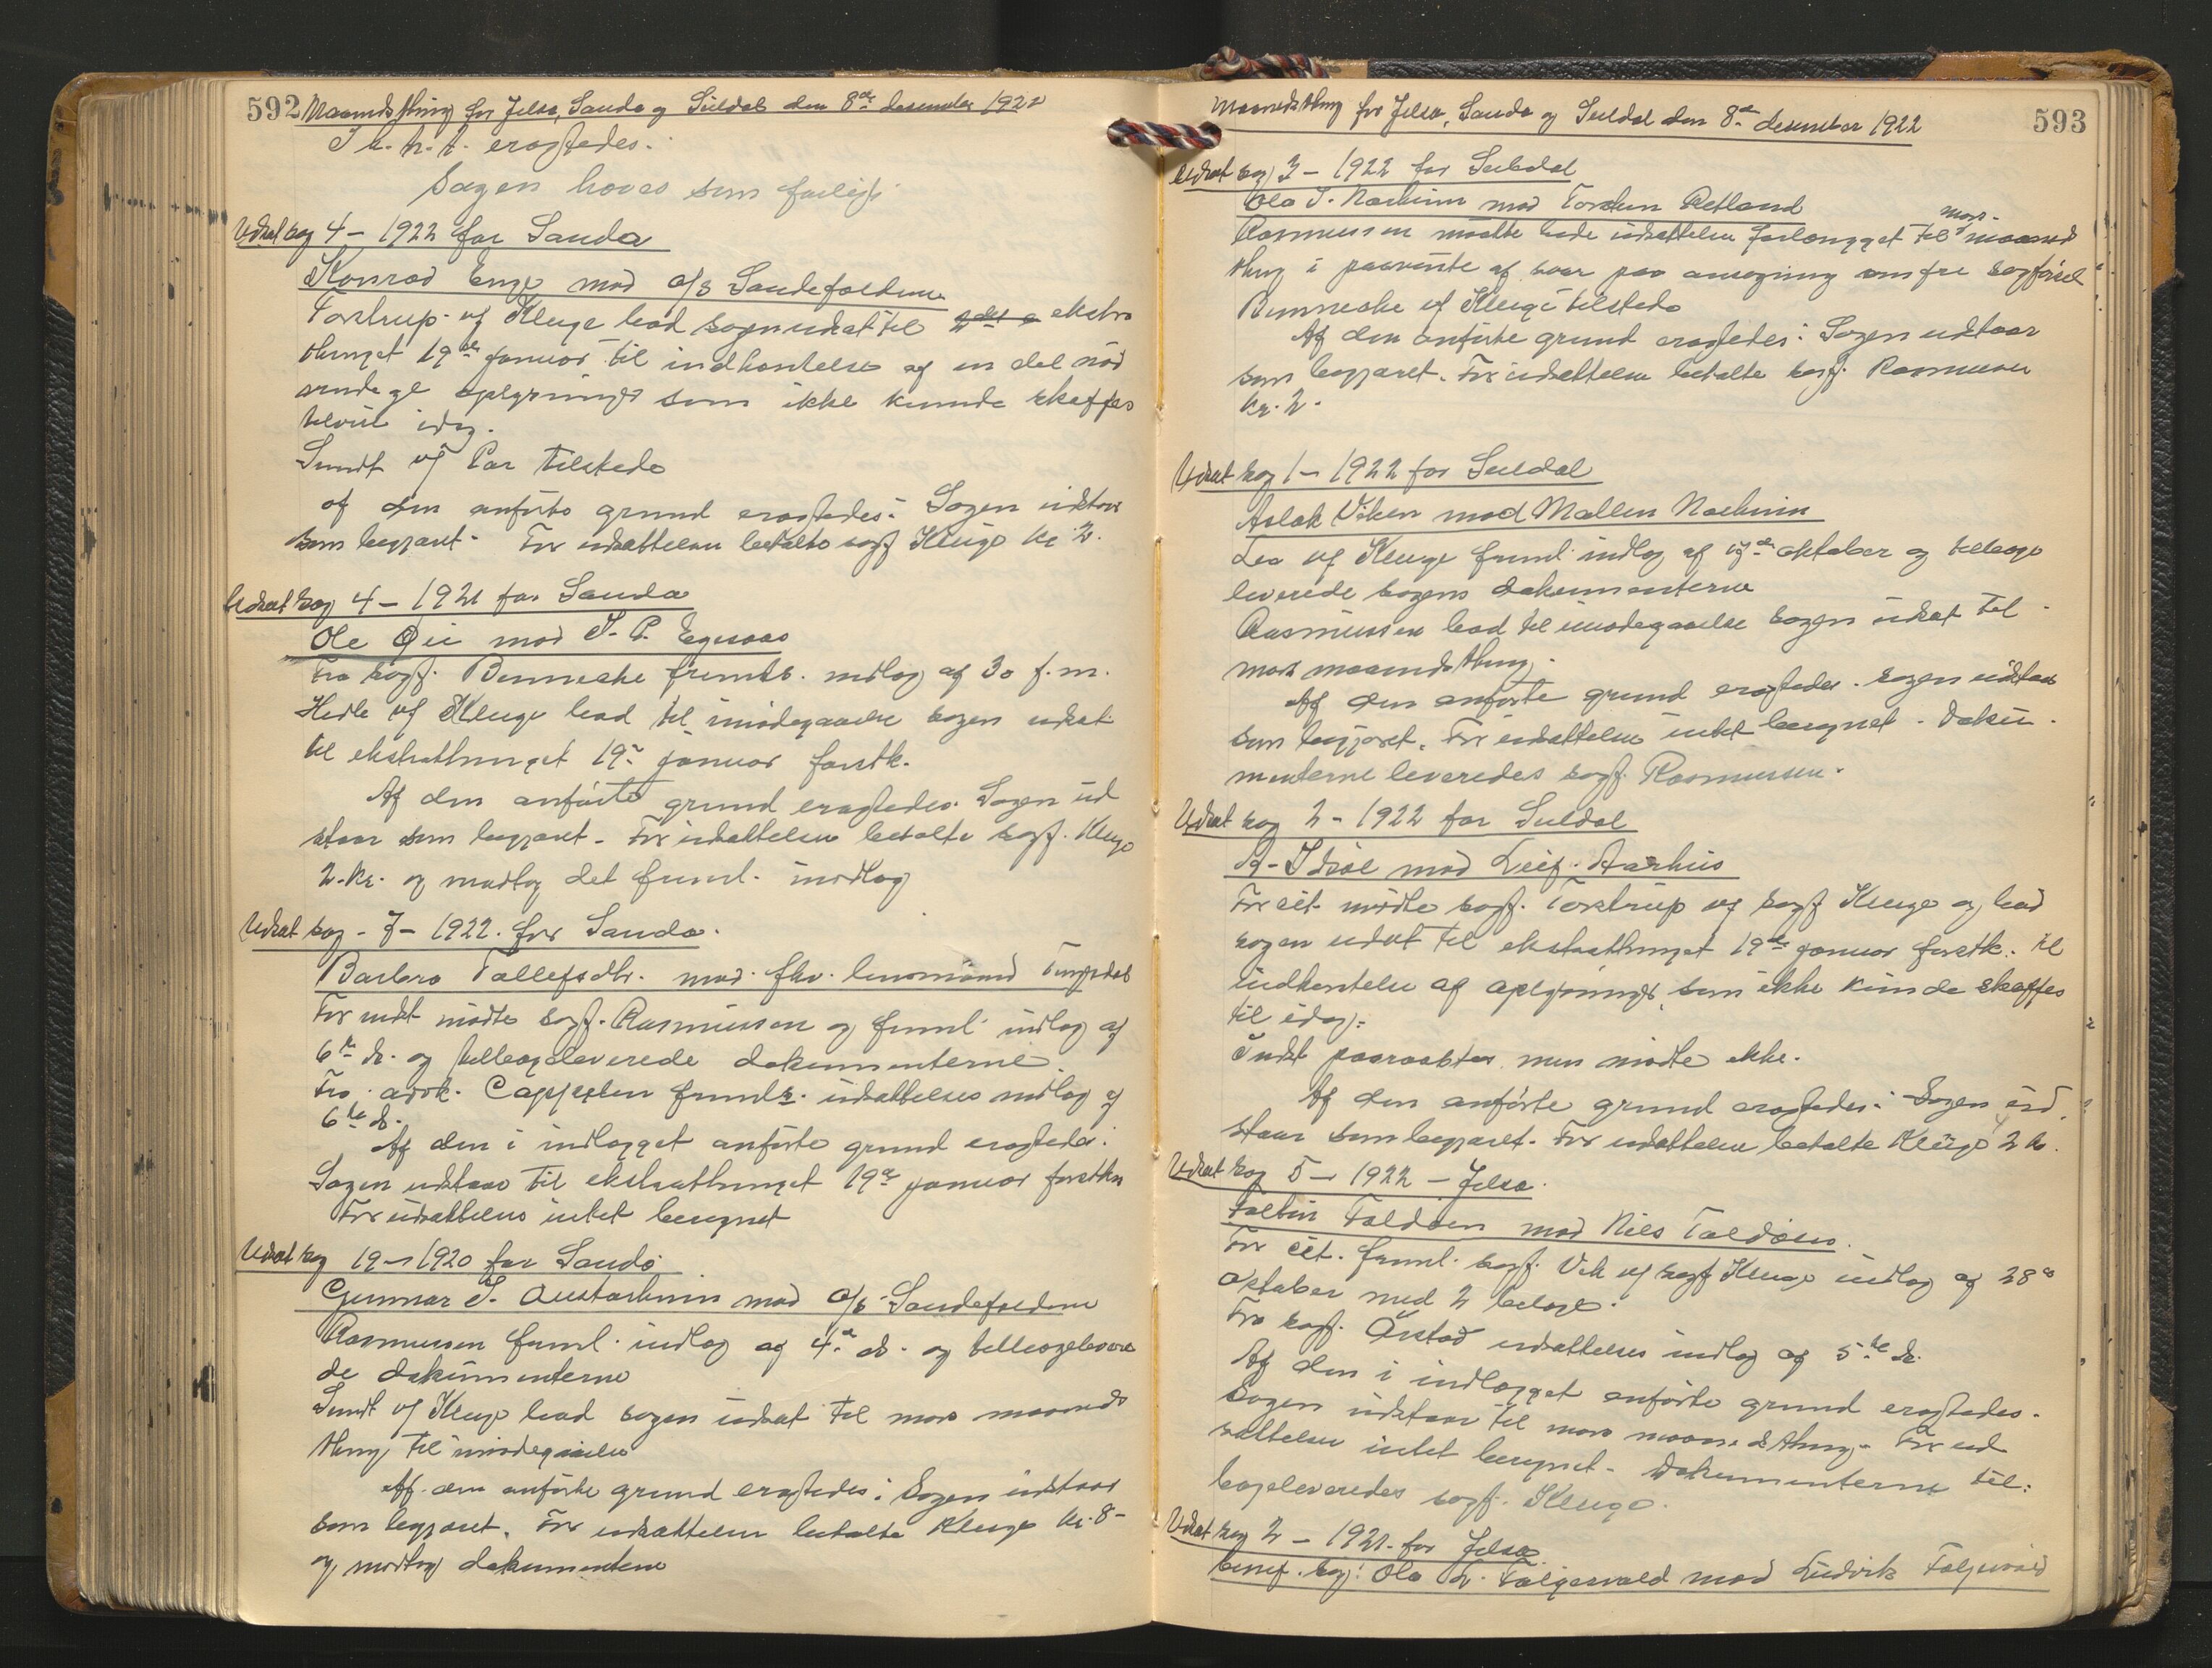 592 Maanedsthing for Jelsa, Sauda og Suldal den 8de desember 1922
I h. h. t. eragtedes:
Sagen hæves som forligt.
Udsat sag 4 - 1922 for Sauda
Konrad Enge mod A/S Saudefaldene
Torstrup vf Kluge bad sagen udsat til ekstra
thinget 19de januar til indhentelse af en del nød
vendige oplysninger som ikke kunde skaffes
tilveie idag.
Sundt vf Par tilstede
af den anførte grund eragtedes: Sagen udstaar
som begjæret. For udsættelsen betalte sagf Kluge kr. 2.
Udsat sag 4 - 1921 for Sauda
Ole Øie mod S. P.
Fra sagf. Bennecke freml. indlæg af 30 f.m.
Hedle vf Kluge bad til imødegaaelse sagen udsat
til ekstrathinget 19. januar førstk.
Af den anførte grund eragtedes: Sagen ud
staar som begjæret. For udsættelsen betalte sagf. Kluge
2. kr. og modtog det freml. indlæg
Udsat sag - 7 - 1922. for Sauda.
Barbro Tollefsdtr. mod fhv. lensmand
For indst mødte sagf. Rasmussen og freml. indlæg af
6te ds. og tilbageleverede dokumenterne
Fra advk. Cappelen freml. udsættelses indlæg af
6te ds.
Af den i indlægget anførte grund eragtedes:
Sagen udstaar til ekstrathinget 19de januar førstkm
For udsættelsen intet beregnet
Udsat sag 19 - 1920 for Sauda
Gunnar S. Austarheim mod A/S Saudefaldene
Rasmussen freml. indlæg af 4de ds. og tilbagelevere
de dokumenterne
Sundt vf Kluge bad sagen udsat til mars maaneds
thing til imødegaaelse
Af den anførte grund eragtedes: Sagen udstaar
som begjæret. For udsættelsen betalte Kluge kr. 8-
og modtog dokumenterne
Maanedsthing for Jelsa, Sauda og Suldal den 8de desember 1922 593
Udsat sag 3 - 1922 for Suldal
Ola T. Nærheim mod Torstein Retland
mars-
Rasmussen maatte bede udsættelsen forlænget til maaneds
thing i paavente af svar paa ansøgning om fri sagførsel
Bennecke vf Kluge tilstede
Af den anførte grund eragtedes: Sagen udstaar
som begjæret. For udsættelsen betalte sagf. Rasmussen
kr. 2.
Udsat sag 1 - 1922 for Suldal
Aslak Viken mod Mallen Nærheim
Lea vf Kluge freml. indlæg af oktober og tilbage
leverede sagens dokumenterne
Rasmussen bad til imødegaaelse sagen udsat til
mars maanedsthing.
Af den anførte grund eragtedes: Sagen udstaar
som begjæret. For udsættelsen intet beregnet. Doku
menterne leveredes sagf. Rasmussen.
Udsat sag 2 - 1922 for Suldal
mod Leif Aarhus
For cit. mødte sagf. Torstrup vf sagf Kluge og bad
sagen udsat til ekstrathinget 19de januar førstk. til
indhentelse af oplysninger, som ikke kunde skaffes
til idag.
Indst paaraabtes men mødte ikke.
Af den anførte grund eragtedes: Sagen ud
staar som begjæret. For udsættelsen betalte Kluge 2 kr.
Udsat sag 5 - 1922 - Jelsa.
Foldøen mod Niels Foldøen.
For cit. freml. sagf. Vik vf sagf Kluge indlæg af 28de
oktober med 2 bilage.
Fra sagf. Ørstad udsættelses indlæg af 5te ds.
Af den i indlægget anførte grund eragtedes:
Sagen udstaar til mars maanedsthing. For ud
sættelsen intet beregnet. Dokumenterne til-
bageleveredes sagf. Kluge.
Udsat sag 2 - 1921. for Jelsa
benef. sag: Ola L. Følgesvold mod Ludvik Følgesvold